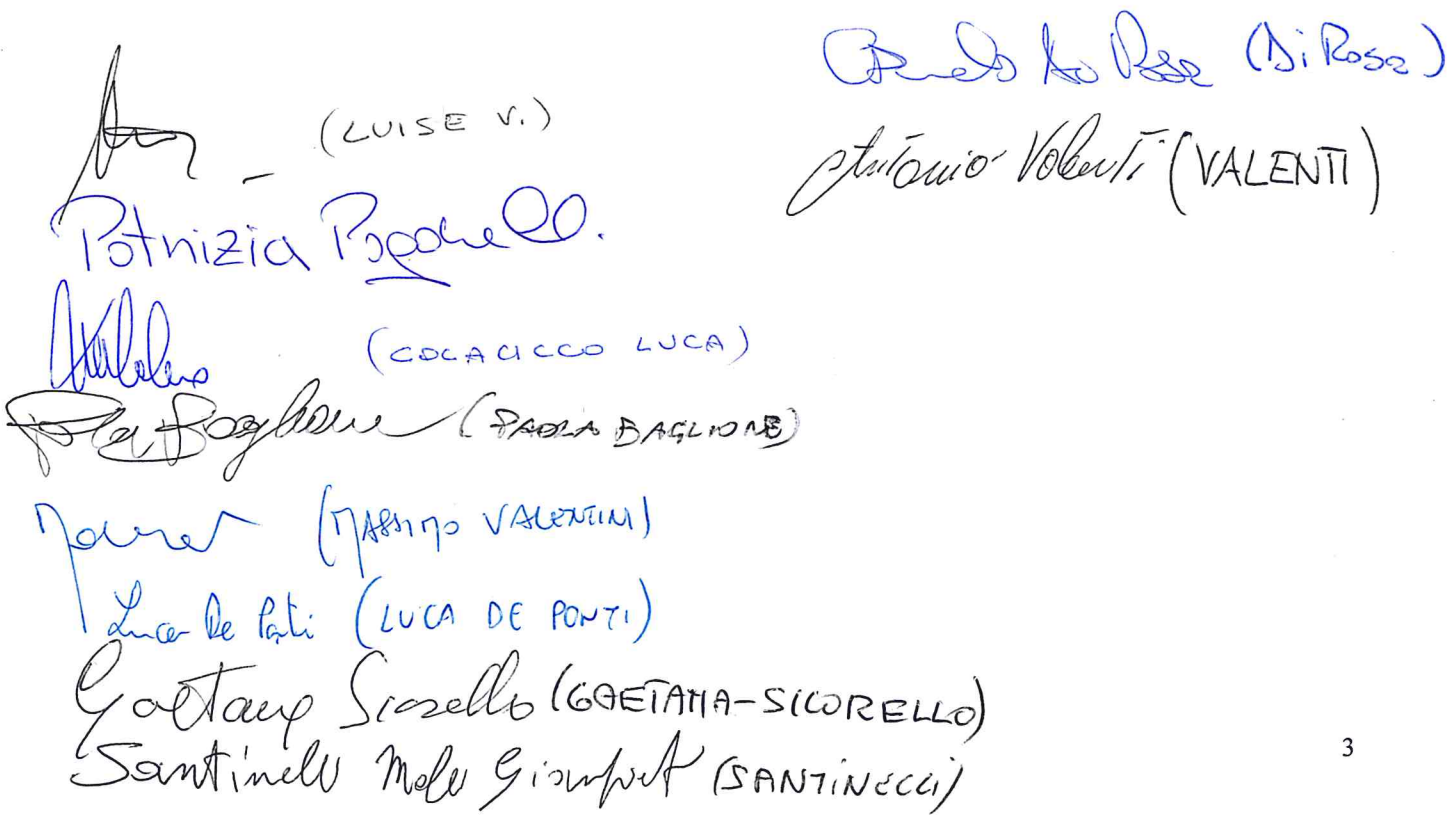 (LUISE V.)
Patrizia
(COLACICCO LUCA)
Paola Baglione (PAOLA BAGLIONE)
(MASSIMO VALENTINI)
Luca De Ponti (LUCA DE PONTI)
Gaetana Sicorello (GAETANA-SICORELLO)
Santinelli (SANTINELLI)
(Di Rosa)
Antonio Valenti (VALENTI)
3